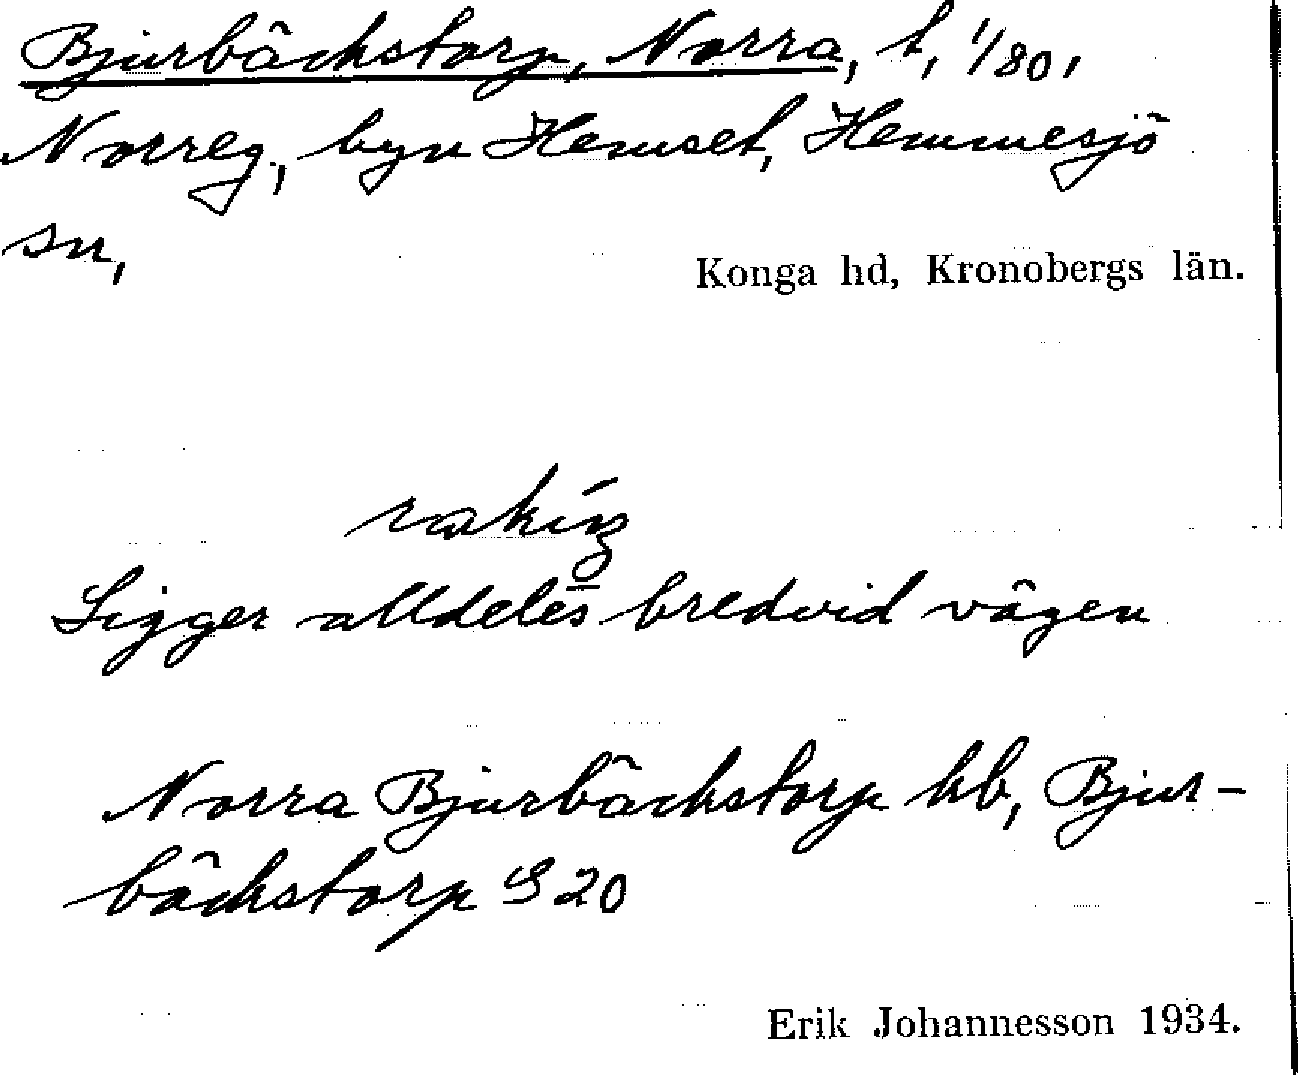 Bjurbäckstorp, Norra, t, 1/80,
Norreg., byn Hemset, Hemmesjö
sn,
Konga hd, Kronobergs län.
Ligger alldeles bredvid vägen
Norra Bjurbäckstorp hb, Bjur-
bäckstorp S 20
Erik Johannesson 1934.